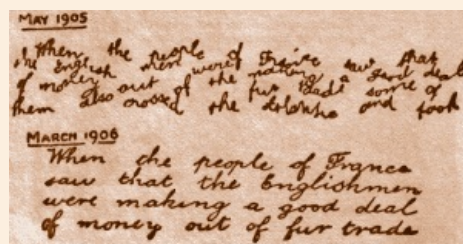 MAY 1905
When the people of France saw that
the English men were making a good deal
of money out of the fur trade some of
them also crossed the and took
MARCH 1906
When the people of France
saw that the Englishmen
were making a good deal
of money out of fur trade